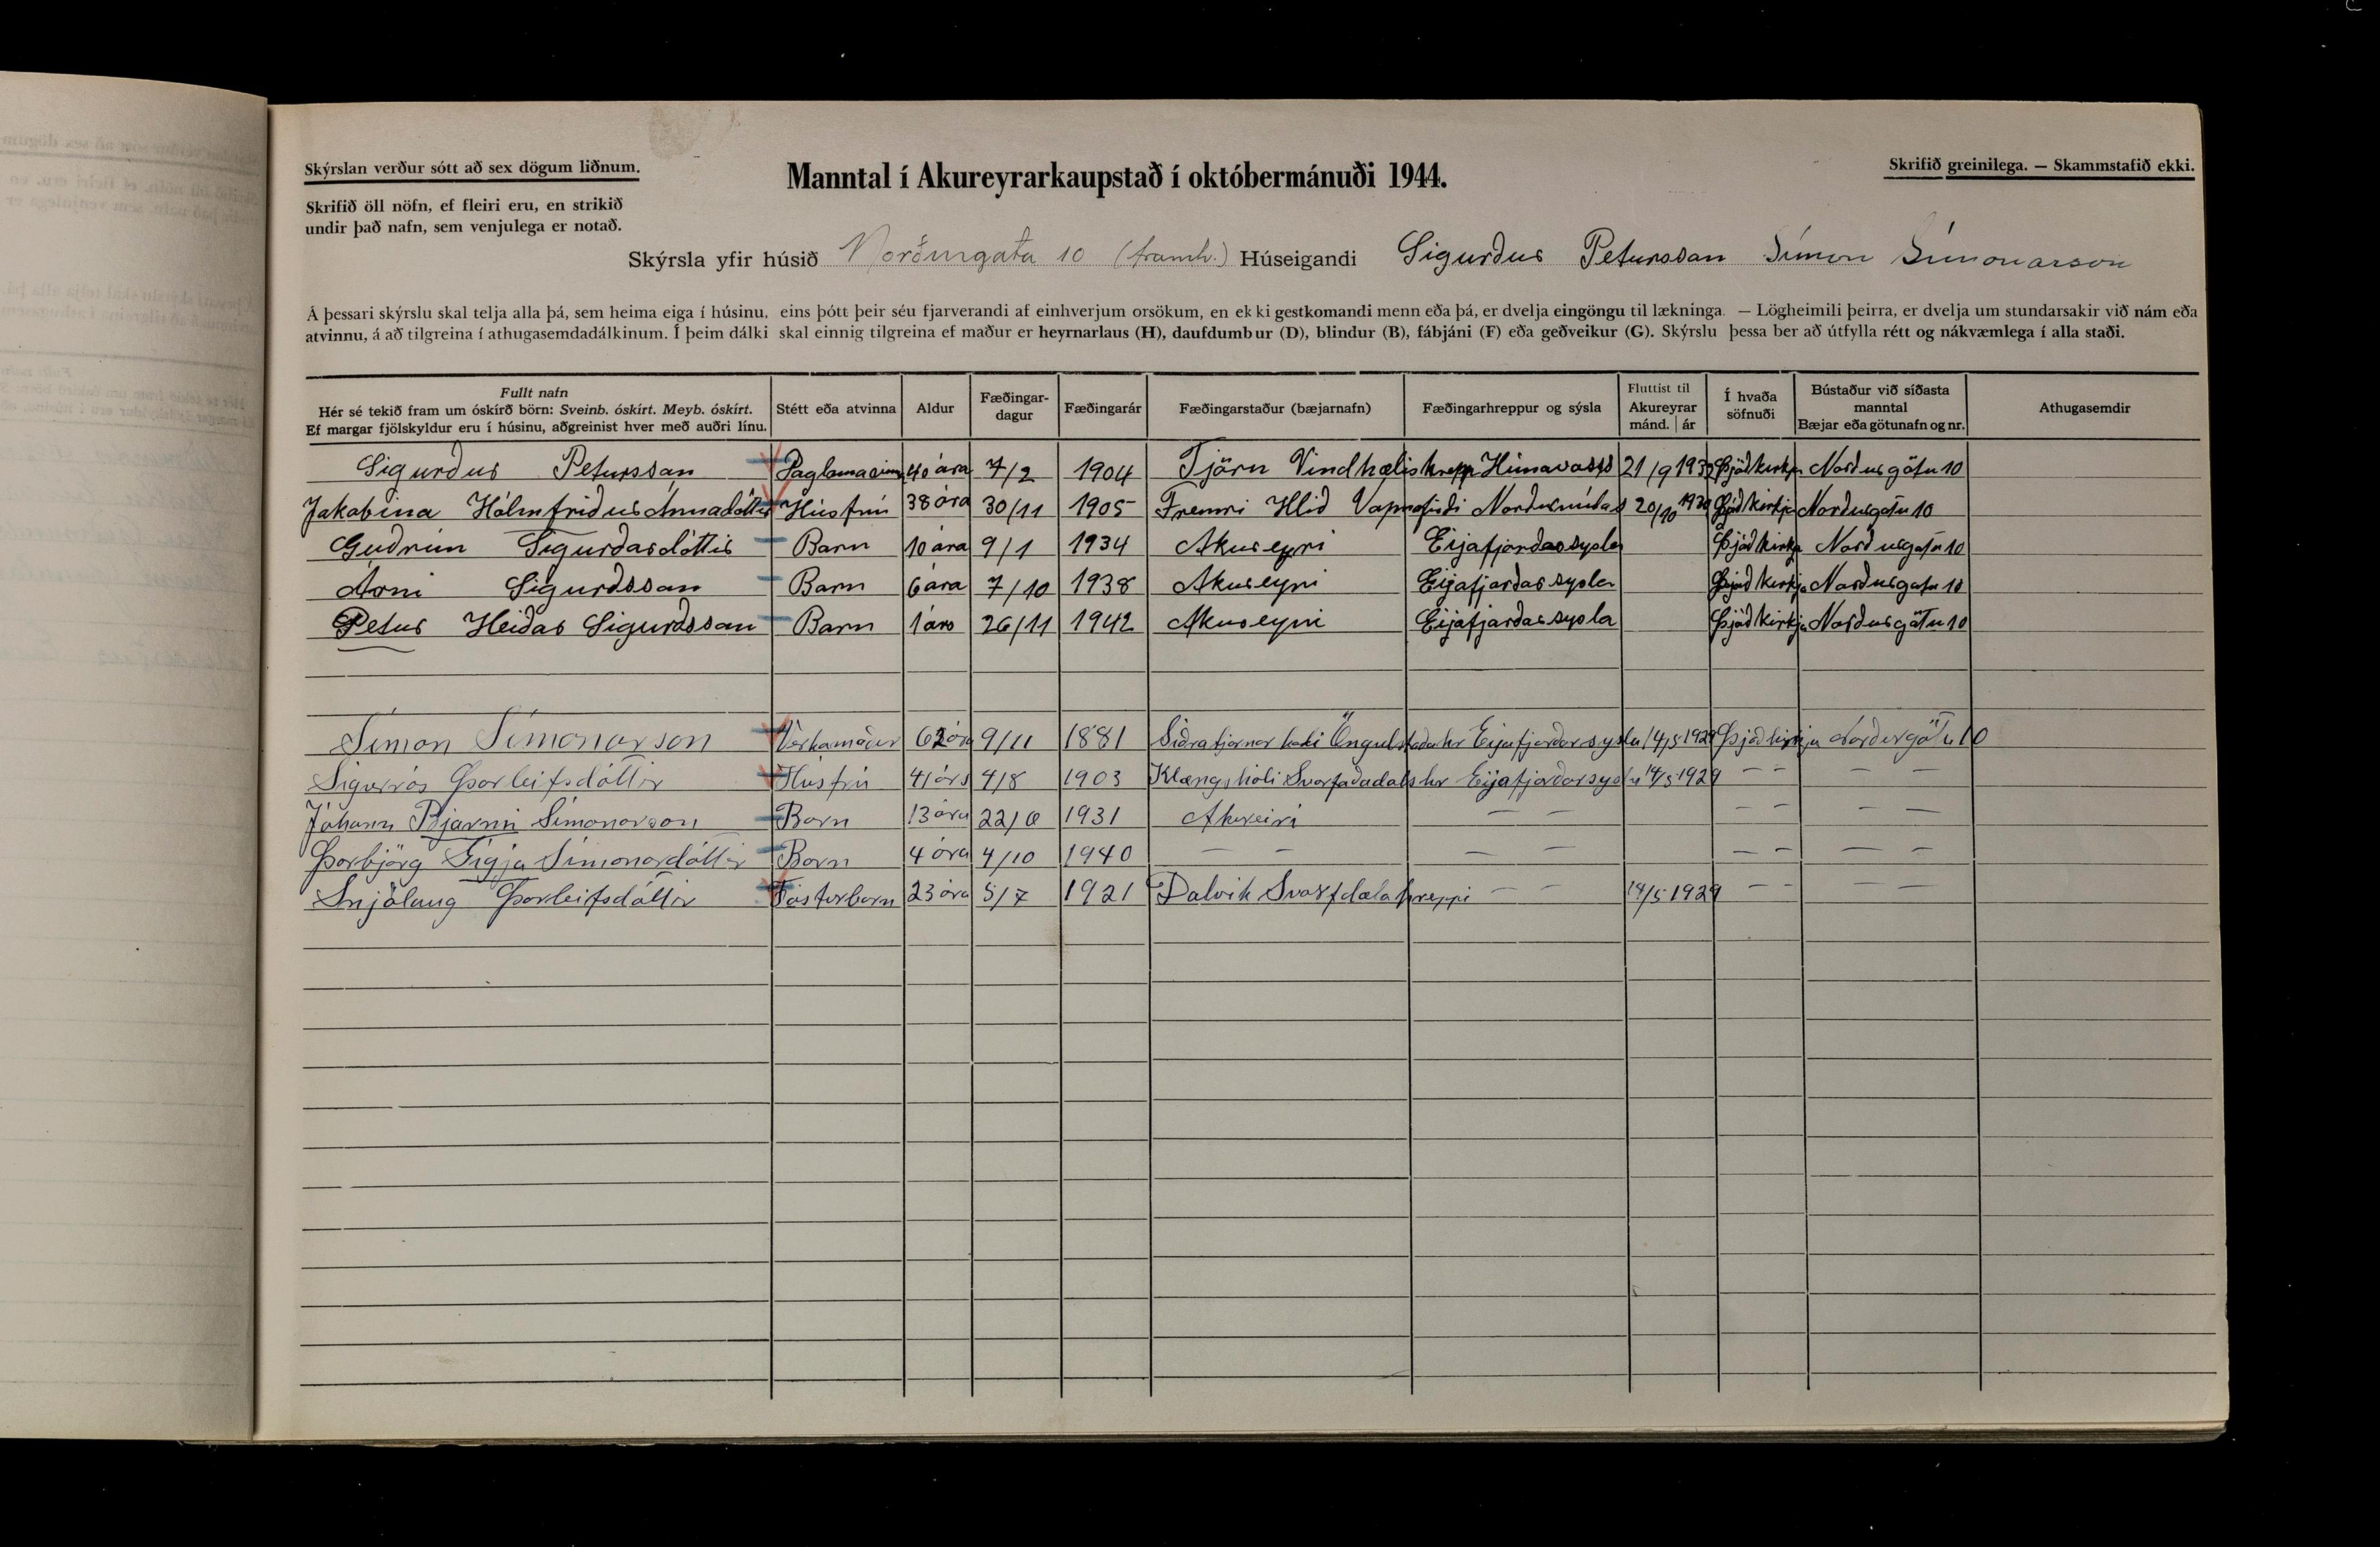 Skýrslan verður sótt að sex dögum liðnum.
Manntal í Akureyrarkaupstað í októbermánuði 1944.
Skrifið greinilega. — Skammstafið ekki.
Skrifið öll nöfn, ef fleiri eru, en strikið
undir það nafn, sem venjulega er notað.
Skýrsla yfir húsið Norðurgata 10 (framh.) Húseigandi Sigurður Peturssan Símon Símonarson
Á þessari skýrslu skal telja alla þá, sem heima eiga í húsinu, eins þótt þeir séu fjarverandi af einhverjum orsökum, en ekki gestkomandi menn eða þá, er dvelja eingöngu til lækninga. — Lögheimili þeirra, er dvelja um stundarsakir við nám eða
atvinnu, á að tilgreina í athugasemdadálkinum. Í þeim dálki skal einnig tilgreina ef maður er heyrnarlaus (H), daufdumbur (D), blindur (B), fábjáni (F) eða geðveikur (G). Skýrslu þessa ber að útfylla rétt og nákvæmlega í alla staði.
Fullt nafn
Hér sé tekið fram um óskírð börn: Sveinb. óskírt. Meyb. óskírt.
Ef margar fjölskyldur eru í húsinu, aðgreinist hver með auðri línu.
Stétt eða atvinna
Aldur
Fæðingar-
dagur
Fæðingarár
Fæðingarstaður (bæjarnafn)
Fæðingarhreppur og sýsla
Fluttist til
Akureyrar
mánd. | ár
Í hvaða
söfnuði
Bústaður við síðasta
manntal
Bæjar eða götunafn og nr.
Athugasemdir
Sigurður Peturssan 40 ára 7/2 1904 Tjörn Vindhælishrepp 21/9 Þjóðkirkja Norðurgötu 10
Jakobina Hólmfriður Árnadóttir Húsfrú 38 ára 30/11 1905 Fremri Hlið Vapnafirði 20/10 1930 Þjóðkirkja Norðurgötu 10
Guðrún Sigurðardóttir Barn 10 ára 9/1 1934 Akureyri Eijafjarðarsysla Þjóðkirkja Norðurgötu 10
Árni Sigurdssan Barn 6 ára 7/10 1938 Akureyri Eijafjarðarsysla Þjóðkirkja Norðurgötu 10
Petur Heiðar Sigurdssan Barn 1 árs 26/11 1942 Akureyri Eijafjarðarsysla Þjóðkirkja Norðurgötu 10
Símon Símonarson Verkamaður 62 ára 9/11 1881 Eijafjarðarsyslu 14/5 1929 Þjóðkirkja Norðurgötu 10
Sigurrós Þorleifsdóttir Húsfrú 41 árs 4/8 1903 Klængshóli Svarfaðadalshr Eijafjarðarsyslu 14/5 1929 — — — —
Jóhann Bjarmi Símonarson Barn 13 ára 1931 Akureiri — — — — — —
Þorbjörg Sigja Símonardóttir Barn 4 ára 4/10 1940 — — — — — — — —
Snjólaug Þorleifsdóttir Fósturbarn 23 ára 5/7 1921 Dalvik Svarfdælahreppi — — 14/5 1929 — — — —